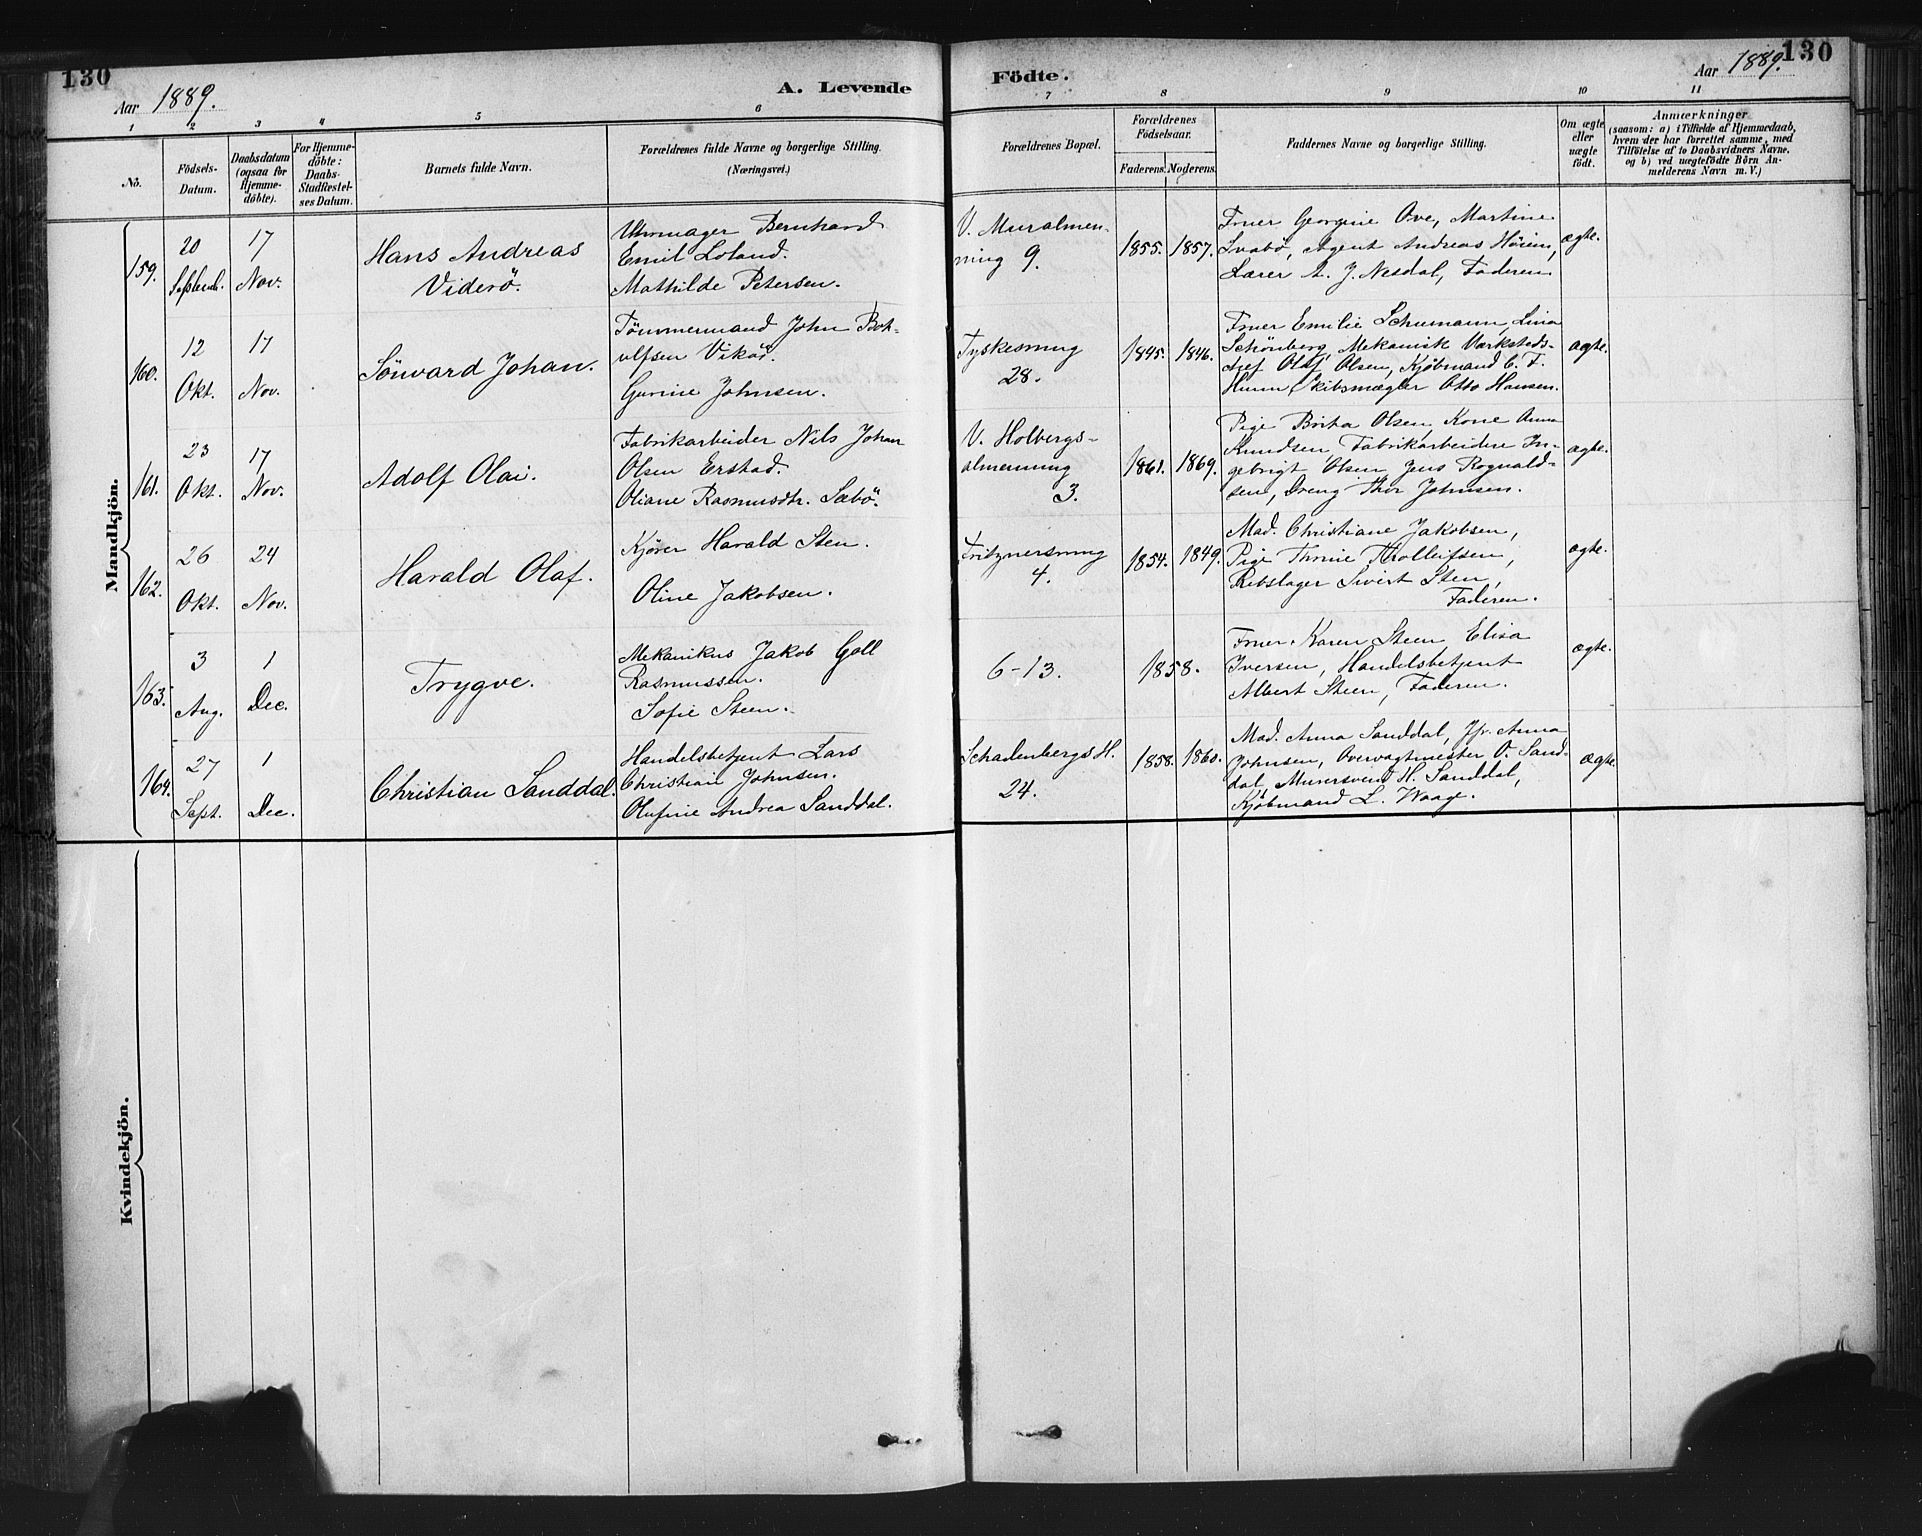 130
Aar 1889.
A. Levende
Födte.
Aar 1889.
130
1 2 3 4 5 6 7 8 9 10 11
No.
Födsels-
Datum.
Daabsdatum
(ogsaa for
Hjemme-
döbte).
For Hjemme-
döbte:
Daabs-
Stadfæstel-
ses Datum.
Barnets fulde Navn.
Forældrenes fulde Navne og borgerlige Stilling.
(Næringsvei.)
Forældrenes Bopæl.
Forældrenes
Födselsaar.
Faderens. Moderens.
Faddernes Navne og borgerlige Stilling.
Om ægte
eller
uægte
födt.
Anmærkninger
(saasom: a) i Tilfælde af Hjemmedaab,
hvem der har forrettet samme, med
Tilföielse af to Daabsvidners Navne,
og b) ved uægtefödte Börn An-
melderens Navn m. V.)
Mandkjön.
159.
20
Septemb.
17
Nov.
Hans Andreas
Viderö.
Uhrmager Bernhard
Emil Loland.
Mathilde Petersen.
V. Muralmen-
ning 9.
1855. 1857.
Fruer Georgine Ove, Martine
Svabö, Agent Andreas Höium,
Lærer A. J. Nesdal, Faderen
ægte.
160.
12
Okt.
17
Nov.
Sönvard Johan.
Tömmermand John Bot-
olfsen Vikör.
Gurine Johnsen.
Tyskesmug
28.
1845. 1846.
Fruer Emilie Schumann, Lina
Schönberg, Mekanisk Værksteds-
chef Olaf Olsen, Kjöbmand C. F.
Skibsmægler Otto Hansen.
ægte.
161.
23
Okt.
17
Nov.
Adolf Olai.
Fabrikarbeider Nils Johan
Olsen Erstad.
Oliane Rasmusdtr. Sæbö.
V. Holbergs-
almenning
3.
1861. 1869.
Pige Brita Olsen, Kone Anna
Knudsen, Fabrikarbeidere In-
gebrigt Olsen, Jens Rognald-
sen, Dreng Thor Johnsen.
ægte.
162.
26
Okt.
24
Nov.
Harald Olaf.
Kjörer Harald Sten.
Oline Jakobsen.
Fritznersmug
4.
1854. 1849.
Mad. Christiane Jakobsen,
Pige Thrine Thollefsen,
Rebslager Sivert Sten,
Faderen.
ægte.
163.
3
Aug.
1
Dec.
Trygve.
Mekanikus Jakob Goll
Rasmussen.
Sofie Steen.
6-13.
1858.
Fruer Karen Steen, Elisa
Iversen, Handelsbetjent
Albert Steen, Faderen.
ægte.
164.
27
Sept.
1
Dec.
Christian Sanddal.
Handelsbetjent Lars
Christian Johnsen.
Olufine Andrea Sanddal.
SchadenbergsH.
24.
1858. 1860.
Mad. Anna Sanddal, Jfr. Anna
Johnsen, Overvagtmester O. Sand-
dal, Murersvend H. Sanddal,
Kjöbmand L. Waag.
ægte.
Kvindekjön.